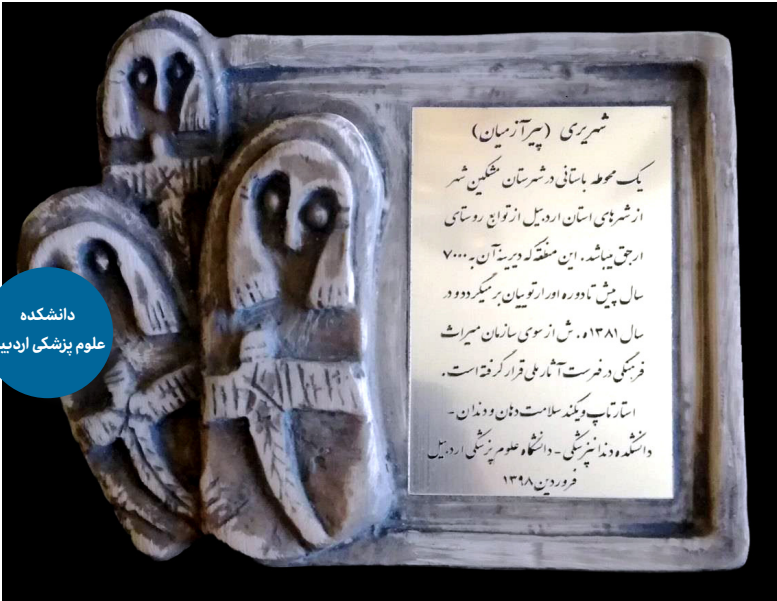 شهریری (پیرآزمیان)
یک محوطه باستانی در شهرستان مشکین شهر
از شهرهای استان اردبیل از توابع روستای
ارجق میباشد. این منطقه که دیرینه آن به ۷۰۰۰
سال پیش تا دوره اورارتوییان بر میگردد و در
سال ۱۳۸۱ ه. ش از سوی سازمان میراث
فرهنگی در فهرست آثار ملی قرار گرفته است.
استارتاپ ویکند سلامت دهان و دندان -
دانشکده دندانپزشکی - دانشگاه علوم پزشکی اردبیل
فروردین ۱۳۹۸
دانشکده
علوم پزشکی اردبی